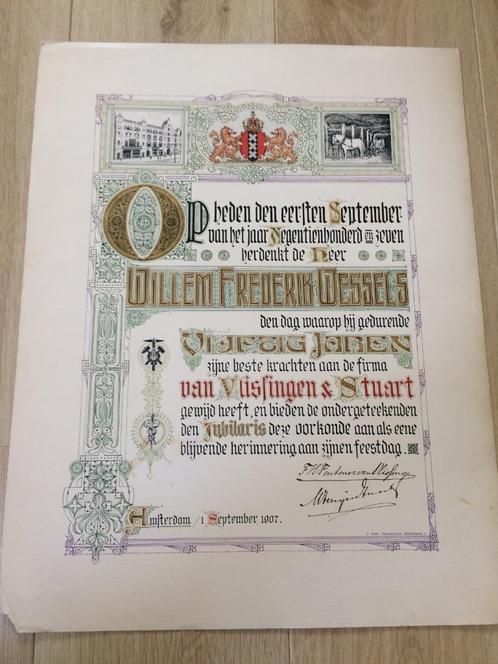 Op heden den eersten September
van het jaar Negentienhonderd en zeven
herdenkt de Heer
Willem Frederik Wessels
den dag waarop hij gedurende
Vijftig Jaren
zijne beste krachten aan de firma
van Vlissingen & Stuart
gewijd heeft, en bieden de ondergeteekenden
den Jubilaris deze oorkonde aan als eene
blijvende herinnering aan zijnen feestdag.
Amsterdam / 1 September 1907.